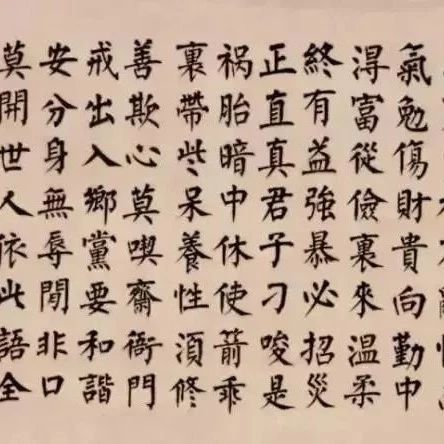 氣勉傷財貴向勤中
淂富從儉裏來温柔
終有益強暴必招災
正直真君子刁唆是
祸胎暗中休使箭乖
裏帶些呆養性須修
善欺心莫喫齋衙門
戒出入鄉黨要和諧
安分身無辱閒非口
莫開世人依此語全